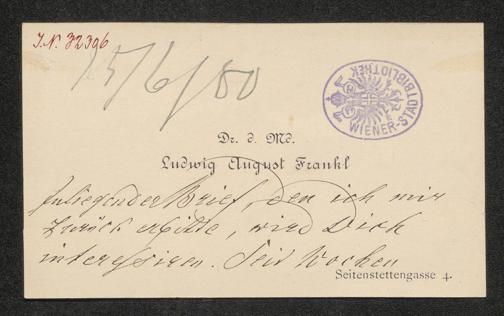 I.N. 32306
15/6/80
WIENER-STADTBIBLIOTHEK
Dr. d. Md.
Ludwig August Frankl
Inliegender Brief, den ich mir
zurück erbitte, wird Dich
interessiren. Seit Wochen
Seitenstettengasse 4.